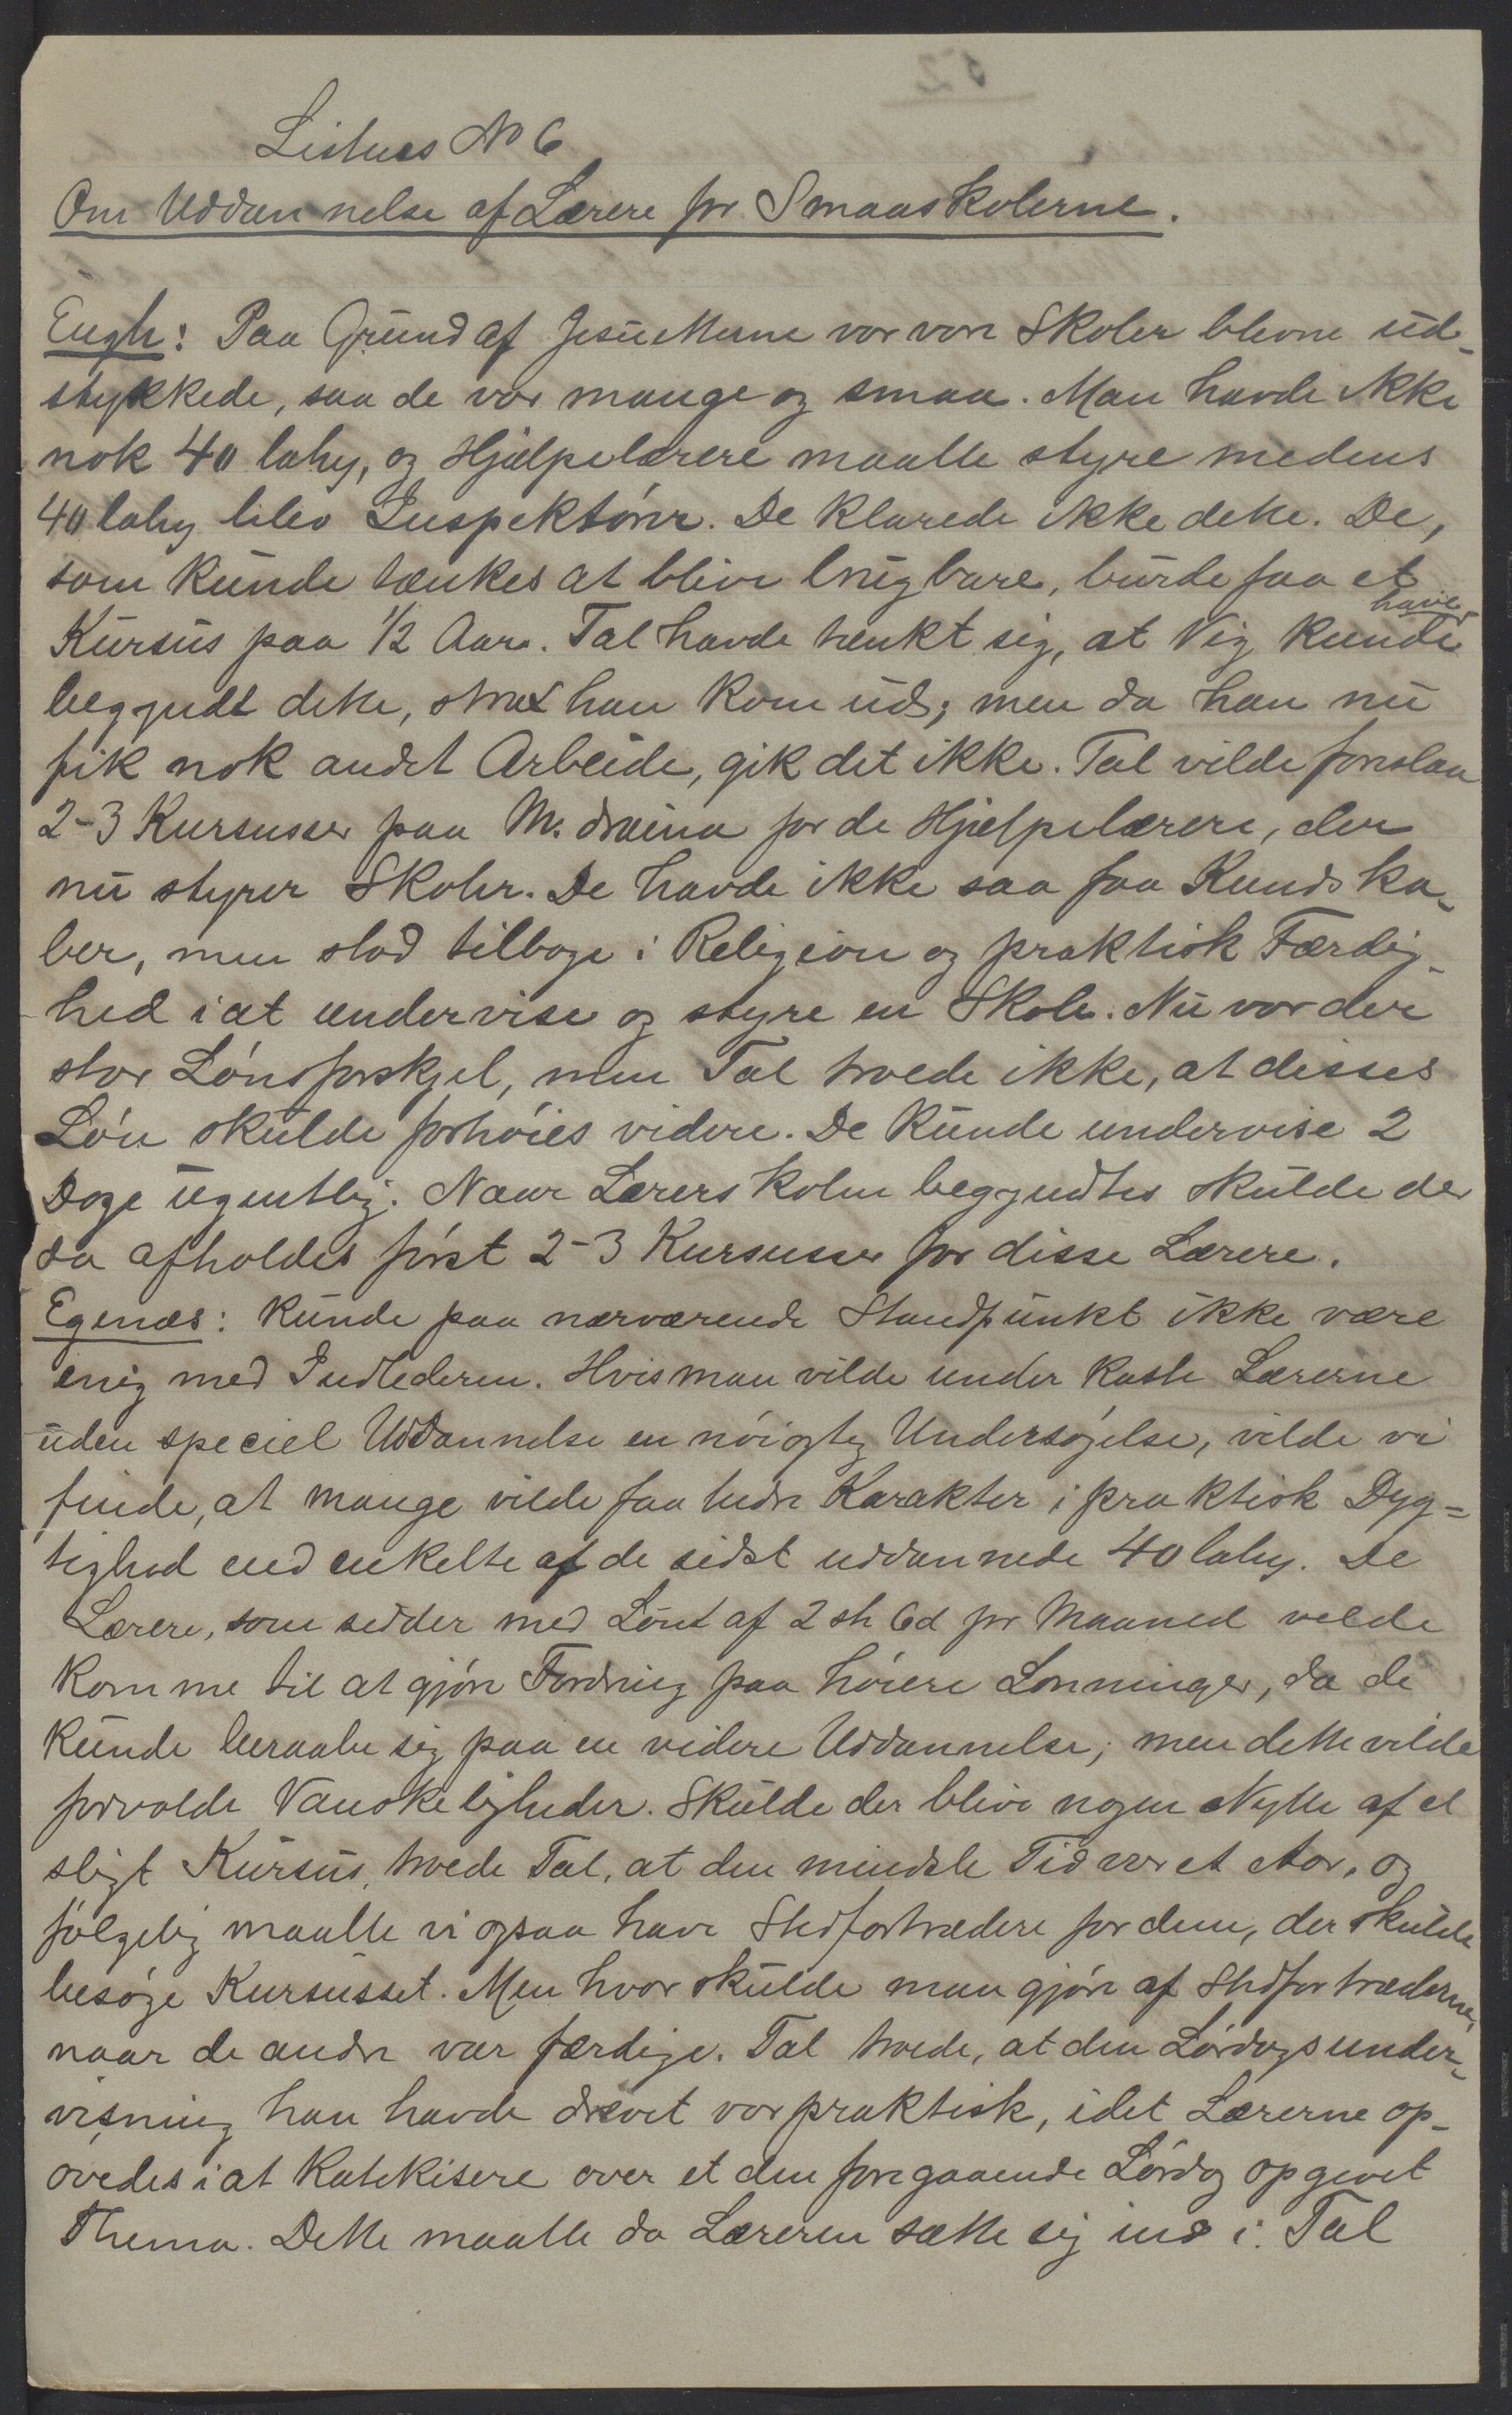 52
Listens No 6
Om Uddannelse af Lærere for Smaaskolerne.
Engh: Paa Grund af Jesuitterne var vore Skoler blevne ud-
stykkede, saa de var mange og smaa. Man havde ikke
nok 40 lahy, og Hjælpelærere maatte styre medens
40 lahy blev Inspektører. De klarede ikke dette. De,
som kunde tænkes at blive brugbare, burde faa et
Kursus paa 1/2 Aar. Tal havde tænkt sig, at Vig kunde have
begyndt dette, strax han kom ud; men da han nu
fik nok andet Arbeide, gik det ikke. Tal vilde foreslaa
2-3 Kursusser paa M. draina for de Hjælpelærere, der
nu styrer Skoler. De havde ikke saa faa Kundska-
ber, men stod tilbage i Religion og praktisk Færdig-
hed i at undervise og styre en Skole. Nu var der
stor Lønsforskjel, men Tal troede ikke, at disses
Løn skulde forhøies videre. De kunde undervise 2
Dage ugentlig. Naar Lærerskolen begyndtes skulde der
da afholdes først 2-3 Kursusser for disse Lærere.
Egenæs: kunde paa nærværende Standpunkt ikke være
enig med Indlederen. Hvis man vilde underkaste Lærerne
uden speciel Uddannelse en nøiagtig Undersøgelse, vilde vi
finde, at mange vilde faa bedre Karakter i praktisk Dyg=
tighed end enkelte af de sidst uddannede 40 lahy. De
Lærere, som sidder med Lønt af 2 sh 6d pr Maaned vilde
komme til at gjøre Fordring paa høiere Lønninger, da de
kunde beraabe sig paa en videre Uddannelse; men dette vilde
forvolde Vanskeligheder. Skulde der blive nogen Nytte af et
sligt Kursus, troede Tal, at den mindste Tid var et Aar, og
følgelig maatte vi ogsaa have Stedfortrædere for dem, der skulde
besøge Kursusset. Men hvor skulde man gjøre af Stedfortræderne,
naar de andre var færdige. Tal troede, at den Lørdagsunder-
visning han havde drevet var praktisk, idet Lærerne op-
øvedes i at katekisere over et den foregaaende Lørdag opgivet
Thema. Dette maatte da Læreren sætte sig ind i. Tal